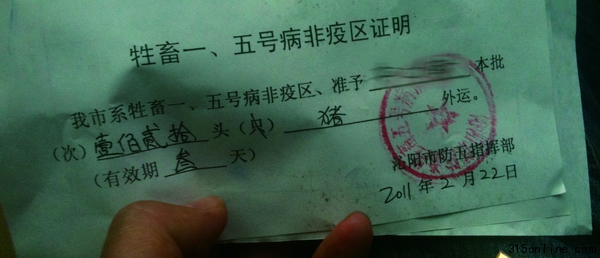 牲畜一、五号病非疫区证明
我市系牲畜一、五号病非疫区、准予 本批
(次) 壹佰贰拾 头 猪 外运。
(有效期 叁 天)
沁阳市防五指挥部
2011年2月22日
315online.com